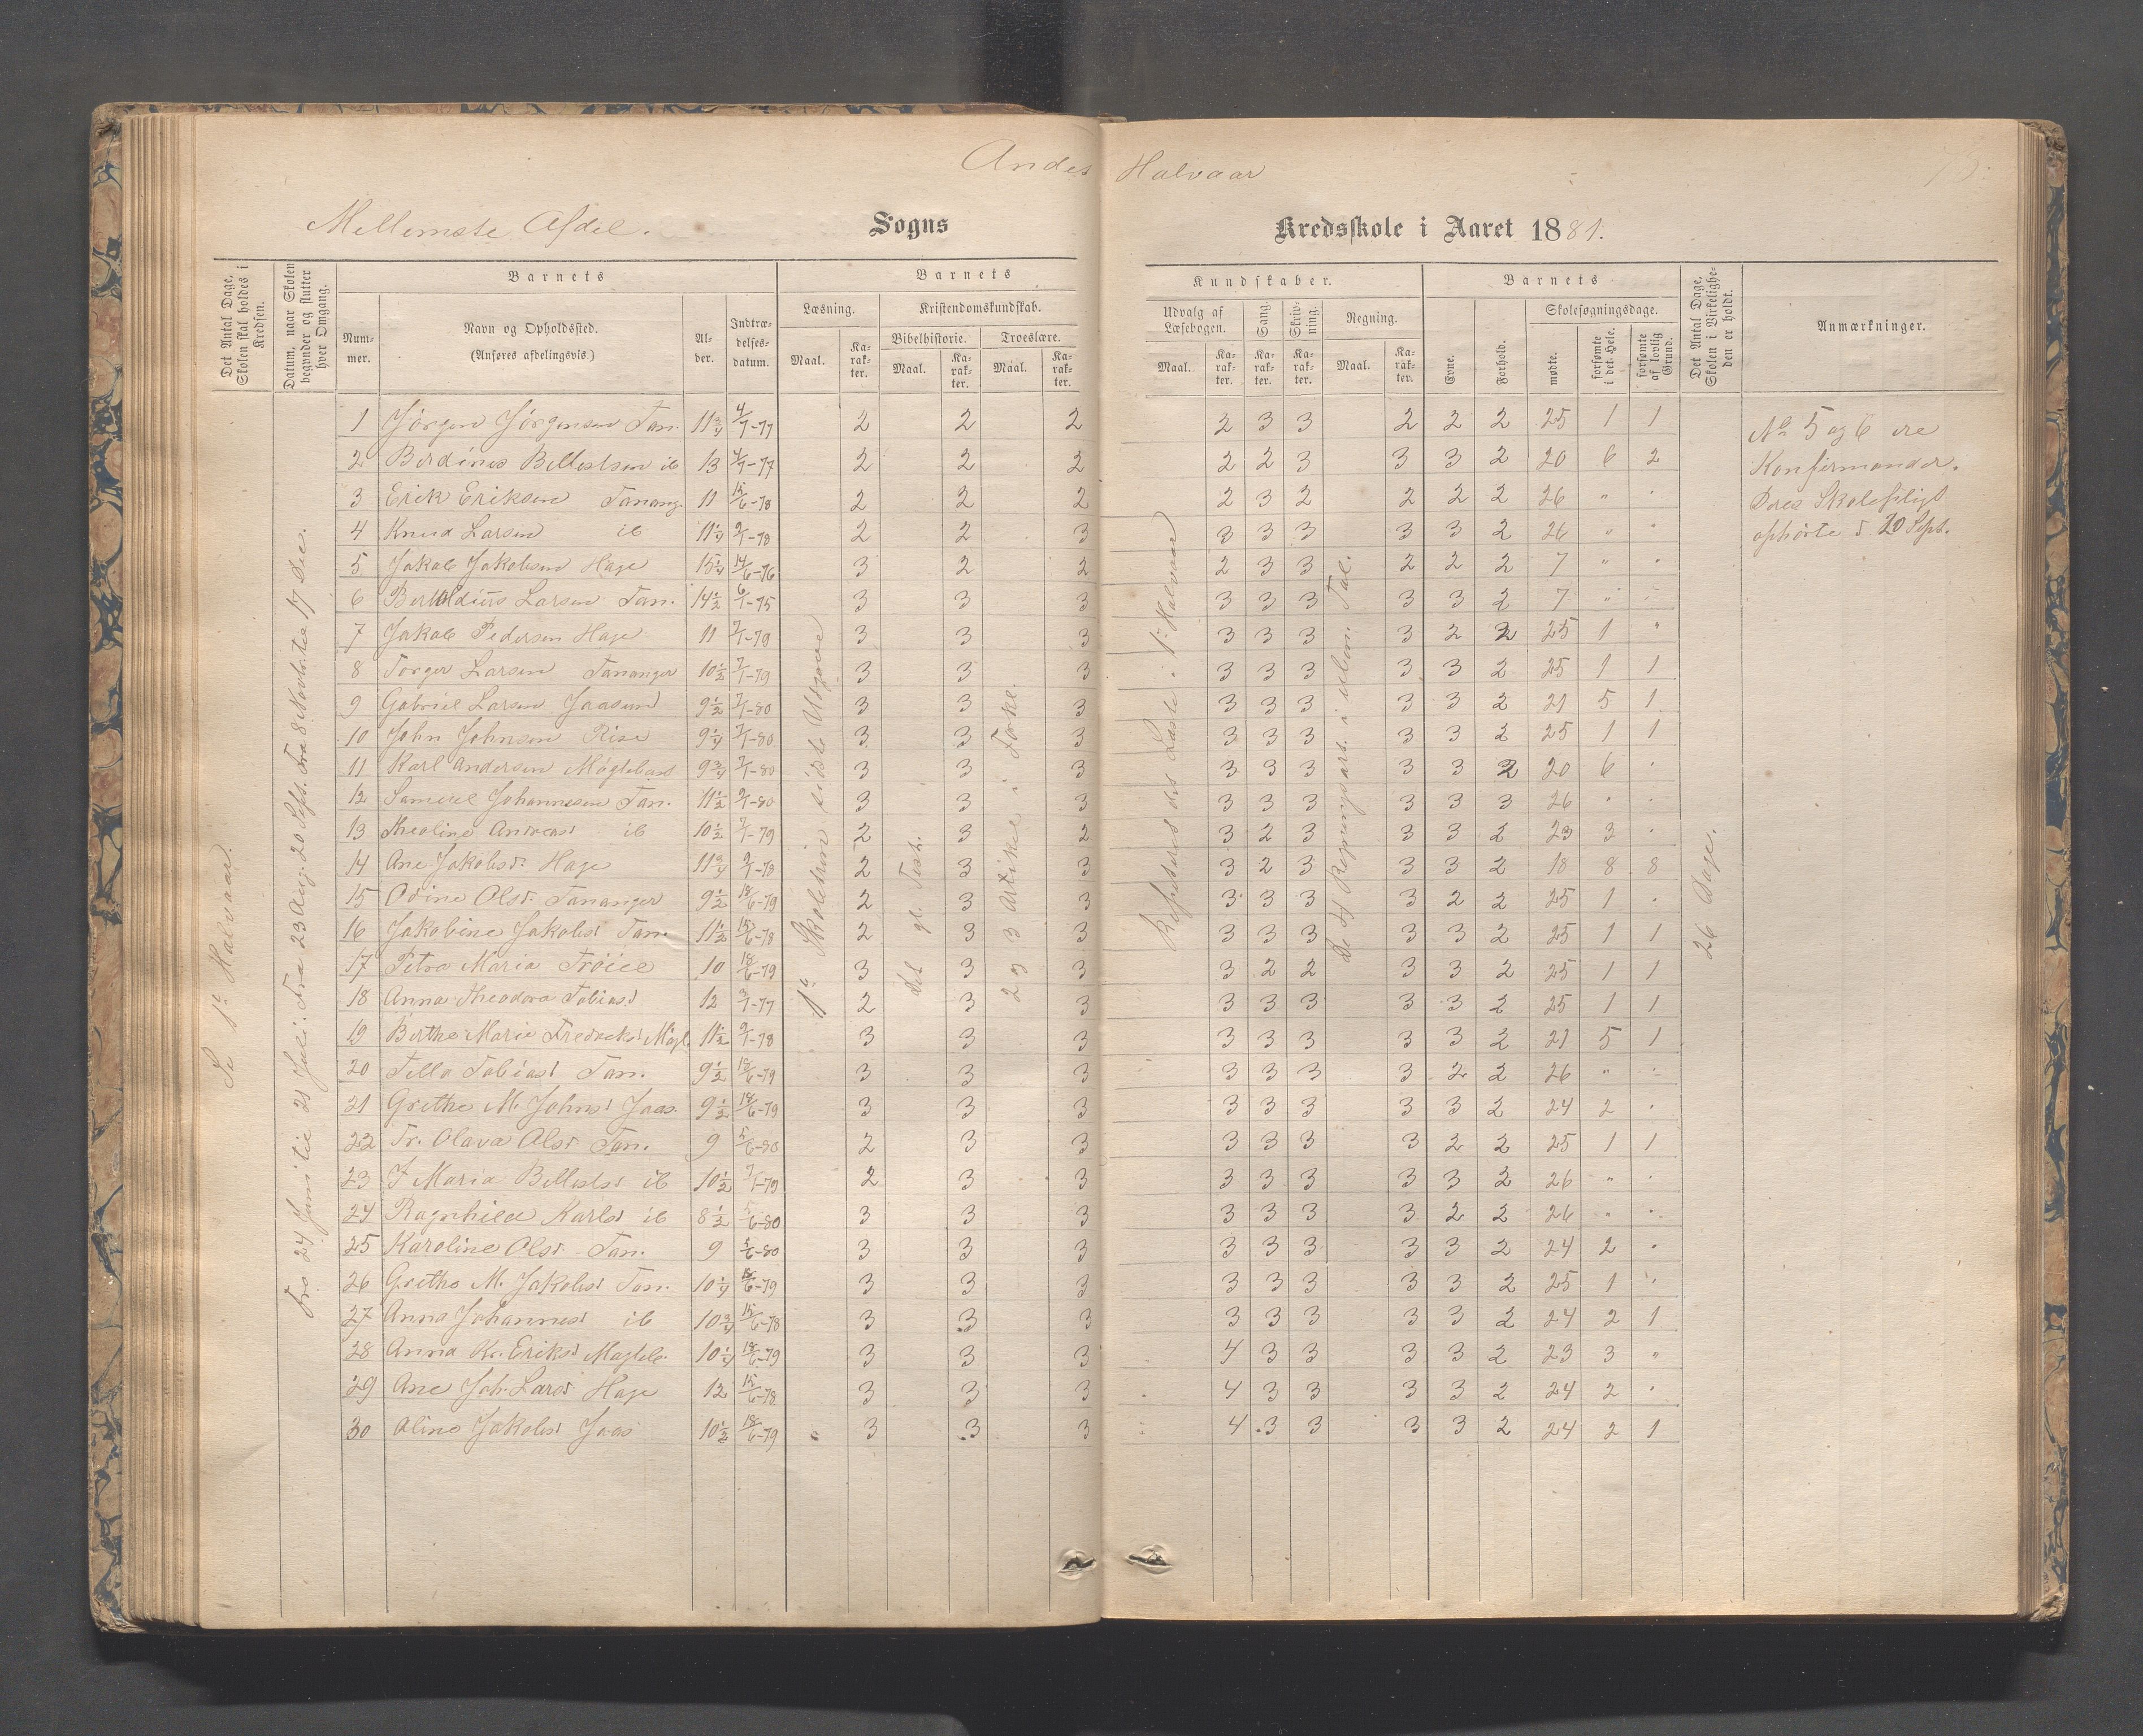 Andet Halvaar
Mellemste Afdel. Sogns Kredsskole i Aaret 1881.
Det Antal Dage, Skolen skal holdes i Kredsen.
Datum, naar Skolen begynder og slutter hver Omgang.
Barnets
Num-mer.
Navn og Opholdssted. (Anføres afdelingsvis.)
Al-der.
Indtræ-delses-datum.
Barnets
Læsning.
Maal.
Ka-rak-ter.
Kristendomskundskab.
Bibelhistorie.
Maal.
Ka-rak-ter.
Troeslære.
Maal.
Ka-rak-ter.
Kundskaber.
Udvalg af Læsebogen.
Maal.
Ka-rak-ter.
Sang.
Ka-rak-ter.
Skriv-ning.
Ka-rak-ter.
Regning.
Maal.
Ka-rak-ter.
Barnets
Evne.
Forhold.
Skolesøgningsdage.
mødte.
forsømte i det Hele.
forsømte af lovlig Grund.
Det Antal Dage, Skolen i Virkelighe-den er holdt.
Anmærkninger.
Se 1ste Halvaar.
Fra 24 Juni til 21 Juli. Fra 23 Aug. 20 Sept. Fra 8 Novbr. til 17 Dec.
1ste Skoletrin sidste Udgave
Det gl. Test.
2 og 3 Artikel i Forkl.
Repeteres det Læste i 1ste Halvaar
De 4 Regningsart. i uben. Tal.
26 Dage.
1 Jørgen Jørgensen Tan. 11 3/4 4/1-77 2 2 2 2 3 3 2 2 2 25 1 1
2 Berdines Bellestsen ib 13 4/1-77 2 2 2 2 2 3 3 3 2 20 6 2
3 Erik Eriksen Tanang. 11 15/6-78 2 2 2 2 3 2 2 2 2 26 " "
4 Knud Larsen ib 11 1/4 2/1-78 2 2 3 3 3 3 3 3 2 26 " "
5 Jakob Jakobsen Hage 15 1/4 14/6-76 3 2 2 2 3 3 2 2 2 7 " "
6 Larsen Tan. 14 1/2 6/1-75 3 3 3 3 3 3 3 3 2 7 " "
7 Jakob Pedersen Hage 11 7/1-79 3 3 3 3 3 3 3 2 2 25 1 "
8 Torger Larsen Tananger 10 1/2 7/1-79 3 3 3 3 3 3 3 3 2 25 1 1
9 Gabriel Larsen Jaasund 9 1/2 7/1-80 3 3 3 3 3 3 3 3 2 21 5 1
10 John Johnsen Risa 9 1/4 7/1-80 3 3 3 3 3 3 3 3 2 25 1 1
11 Karl Andersen Møgleb. 9 3/4 7/1-80 3 3 3 3 3 3 3 3 2 20 6 "
12 Samuel Johannesen Tan. 11 1/2 7/1-80 3 3 3 3 3 3 3 3 3 26 " "
13 Theoline Andreasd ib 10 1/2 7/1-79 2 3 2 3 2 3 3 3 2 23 3 "
14 Ane Jakobsd. Hage 11 3/4 2/1-78 2 3 3 3 2 3 3 3 2 18 8 8
15 Odine Olsd. Tananger 9 1/2 18/6-79 2 3 3 3 3 3 3 2 2 25 1 "
16 Jakobine Jakobsd Tan. 11 1/2 15/6-78 2 3 3 3 3 3 3 3 2 25 1 1
17 Petra Maria Trøiel 10 18/6-79 3 3 3 3 2 2 3 3 2 25 1 1
18 Anna Theodora Tobiasd 12 2/1-77 2 3 3 3 3 3 3 3 2 25 1 1
19 Berthe Marie Fredriksd Møgl. 11 1/2 2/1-78 3 3 3 3 3 3 3 3 2 21 5 1
20 Tella Tobiasd Tan. 9 1/2 18/6-79 3 3 3 3 3 3 3 2 2 26 " "
21 Grethe M. Johnsd Jaas. 9 1/2 18/6-79 3 3 3 3 3 3 3 3 2 24 2 "
22 Tr. Olava Olsd Tan. 9 5/6-80 2 3 3 3 3 3 3 2 2 25 1 1
23 J Maria Bellestsd ib 10 1/2 7/1-79 2 3 3 3 3 3 3 3 2 26 " "
24 Ragnhild Karlsd ib 8 1/2 6-80 3 3 3 3 3 3 3 2 2 26 " "
25 Karoline Olsd Tan. 9 5/6-80 3 3 3 3 3 3 3 3 2 24 2 "
26 Grethe M. Jakobsd Tan. 10 1/4 18/6-79 3 3 3 3 3 3 3 3 2 25 1 "
27 Anna Johannesd ib 10 3/4 15/6-78 3 3 3 3 3 3 3 3 2 24 2 1
28 Anna K. Eriksd Mogleb. 10 1/4 18/6-79 3 3 3 4 3 3 3 3 2 23 3 "
29 Ane Joh. Larsd Hage 12 15/6-78 3 3 3 4 3 3 3 3 2 24 2 "
30 Aline Jakobsd Jaas 10 1/2 18/6-79 3 3 3 4 3 3 3 3 2 24 2 1
No 5 og 6 ere
Konfirmander.
Deres Skolepligt
ophørte d. 20 Sept.